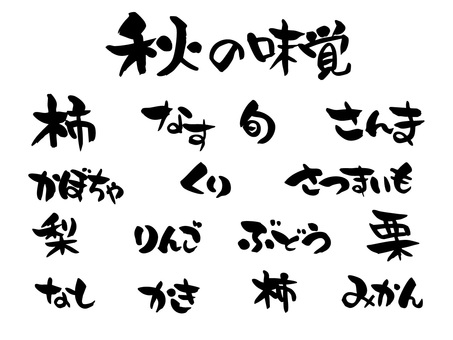 秋の味覚
柿 なす 旬 さんま
かぼちゃ くり さつまいも
梨 りんご ぶどう 栗
なし かき 柿 みかん